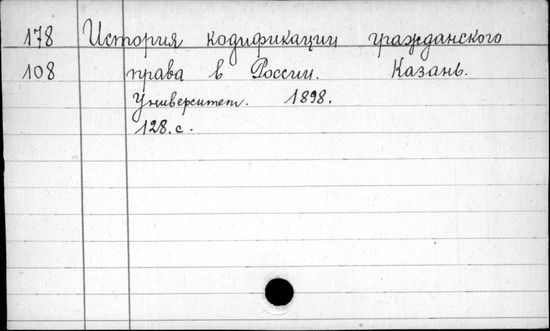 178 История кодификации гражданского
108 права в России. Казань.
Университет. 1898.
128.с.